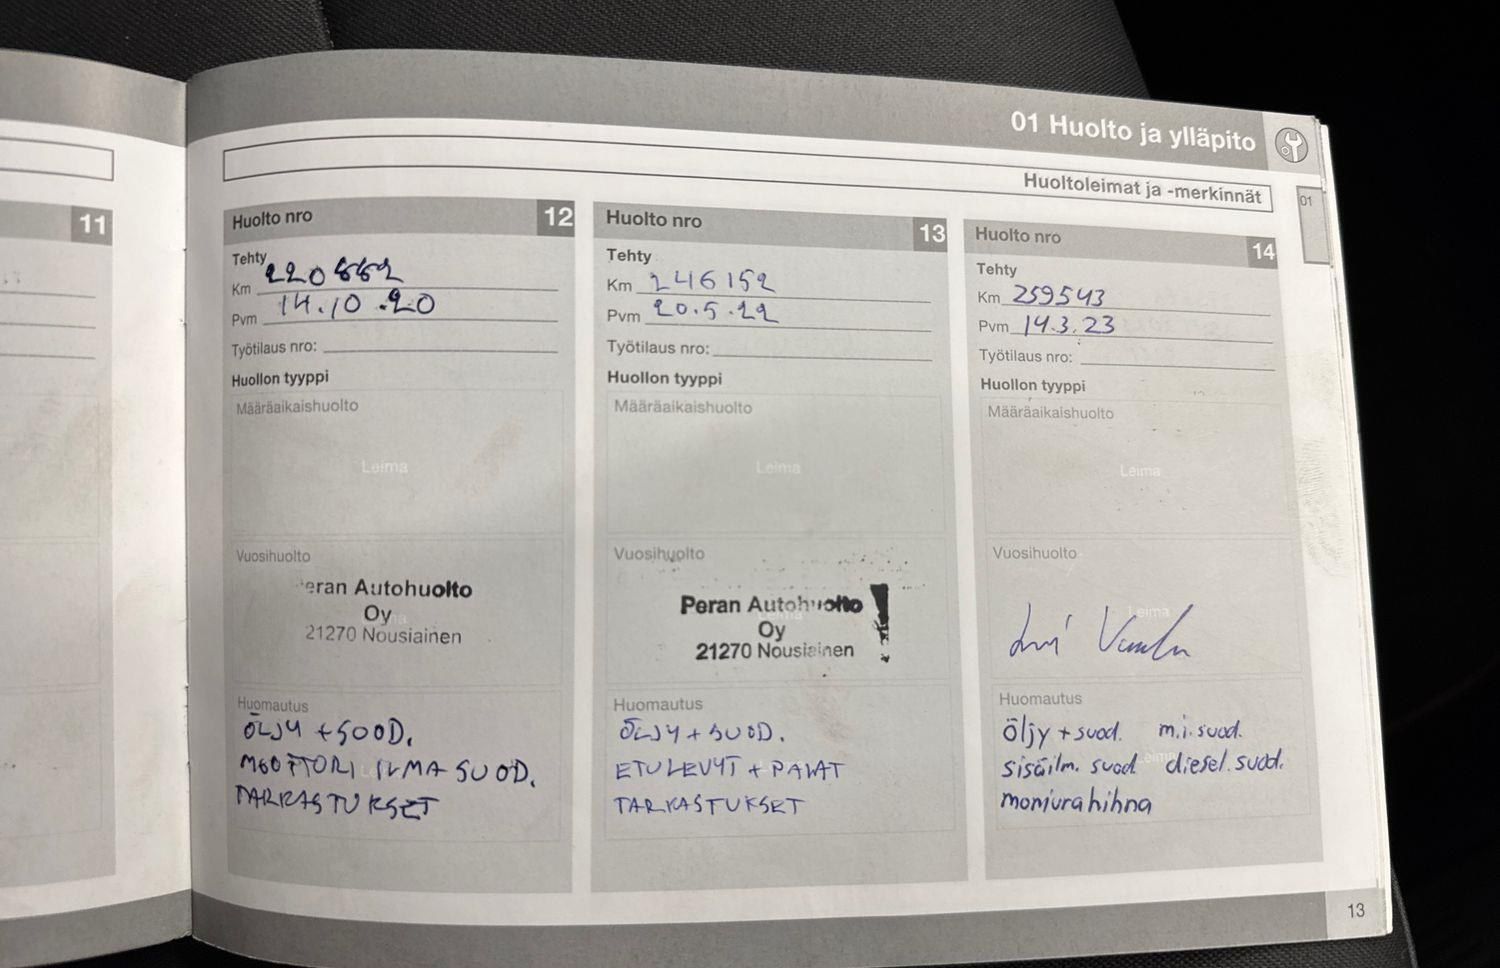 01 Huolto ja ylläpito
Huoltoleimat ja -merkinnät
01
11
Huolto nro 12
Tehty
Km 220662
Pvm 14.10.20
Työtilaus nro:
Huollon tyyppi
Määräaikaishuolto
Leima
Vuosihuolto
eran Autohuolto
Oy
21270 Nousiainen
Huomautus
ÖLJY + SUOD.
MOOTTORI ILMA SUOD.
TARKASTUKSET
Huolto nro 13
Tehty
Km 246152
Pvm 20.5.22
Työtilaus nro:
Huollon tyyppi
Määräaikaishuolto
Leima
Vuosihuolto
Peran Autohuolto
Oy
21270 Nousiainen
Huomautus
ÖLJY + SUOD.
ETULEVYT + PALAT
TARKASTUKSET
Huolto nro 14
Tehty
Km 259543
Pvm 14.3.23
Työtilaus nro:
Huollon tyyppi
Määräaikaishuolto
Leima
Vuosihuolto
Leima
Huomautus
öljy + suod. m.i. suod.
sisäilm. suod diesel. suod.
moniurahihna
13